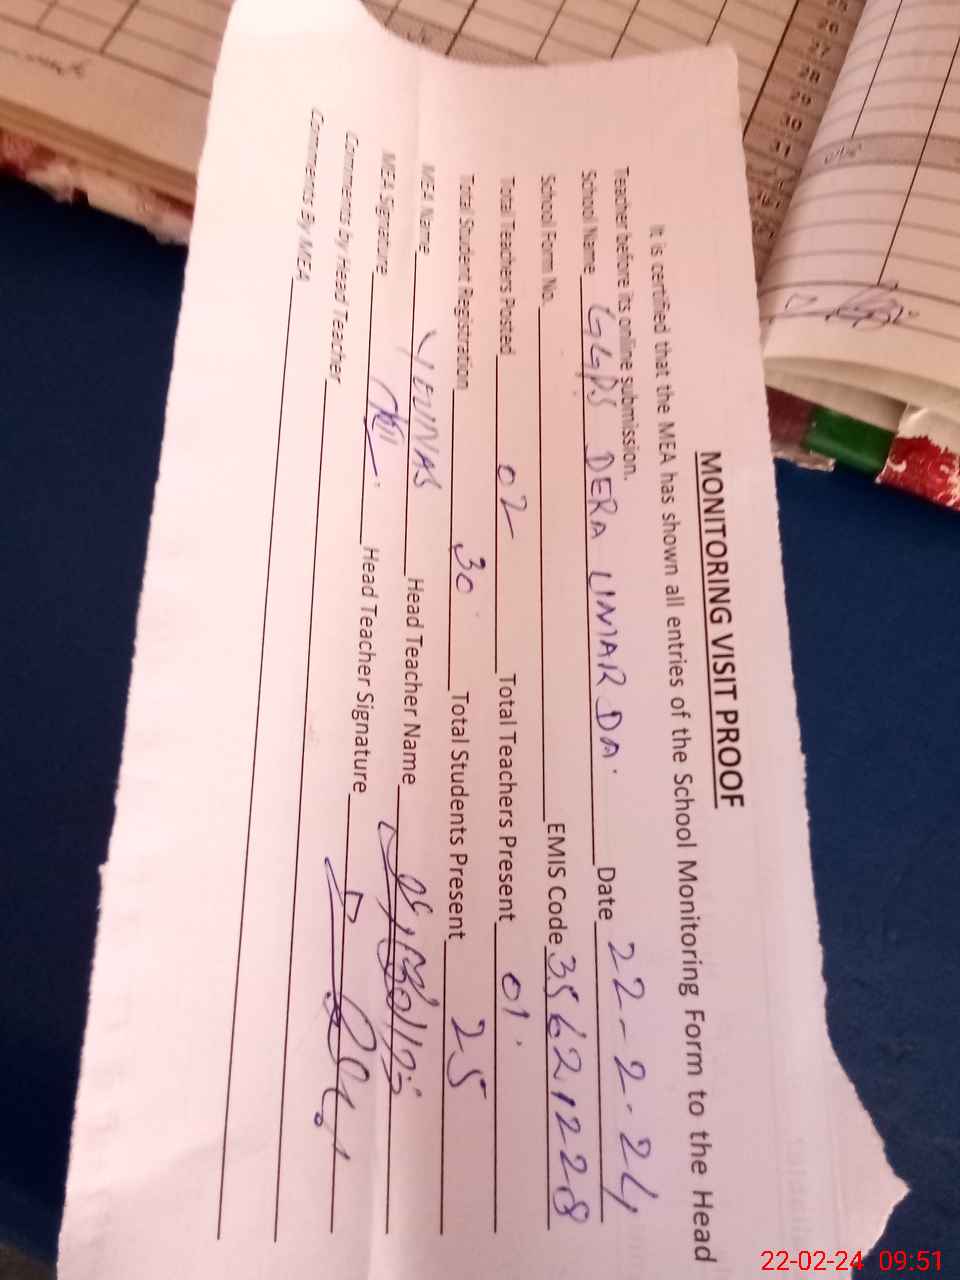 MONITORING VISIT PROOF
It is certified that the MEA has shown all entries of the School Monitoring Form to the Head
Teacher before its online submission.
School Name GGPS DERA UMAR DA. Date 22-2-24
School Form No. EMIS Code 35621228
Total Teachers Posted 02 Total Teachers Present 01
Total Student Registration 30 Total Students Present 25
MEA Name YOUNAS Head Teacher Name
MEA Signature Head Teacher Signature
Comments by Head Teacher
Comments By MEA
25
26
27
28
29
30
31
22-02-24 09:51